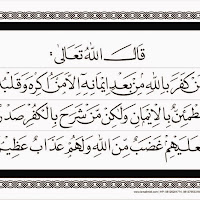 قال الله تعالى:
من كفر بالله من بعد إيمانه إلا من أكره وقلبه
مطمئن بالإيمان ولكن من شرح بالكفر صدرا
فعليهم غضب من الله ولهم عذاب عظيم